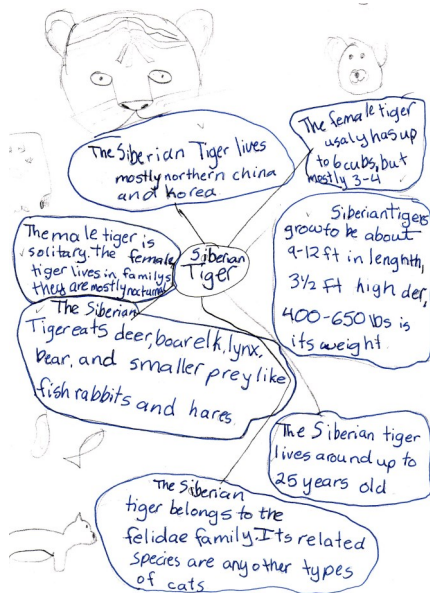 The Siberian Tiger lives
mostly northern china
and Korea
The female tiger
usaly has up
to 6 cubs, but
mostly 3-4
The male tiger is
solitary. the female
tiger lives in familys
they are mostly nocturnal
Siberian
Tiger
Siberian tigers
grow to be about
9-12 ft in lenghth,
3½ ft high
400-650 lbs is
its weight.
The Siberian
Tiger eats deer, boar elk, lynx,
bear, and smaller prey like
fish rabbits and hares.
The Siberian tiger
lives around up to
25 years old
The Siberian
tiger belongs to the
felidae family. Its related
species are any other types
of cats